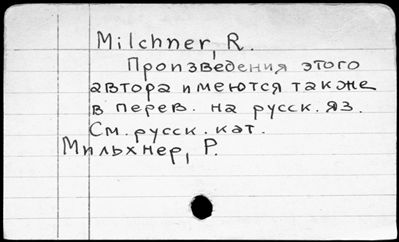 Milchner, R.
Произведения этого
автора имеются также
в перев. на русск. яз.
См. русск. кат.
Мильхнер, Р.